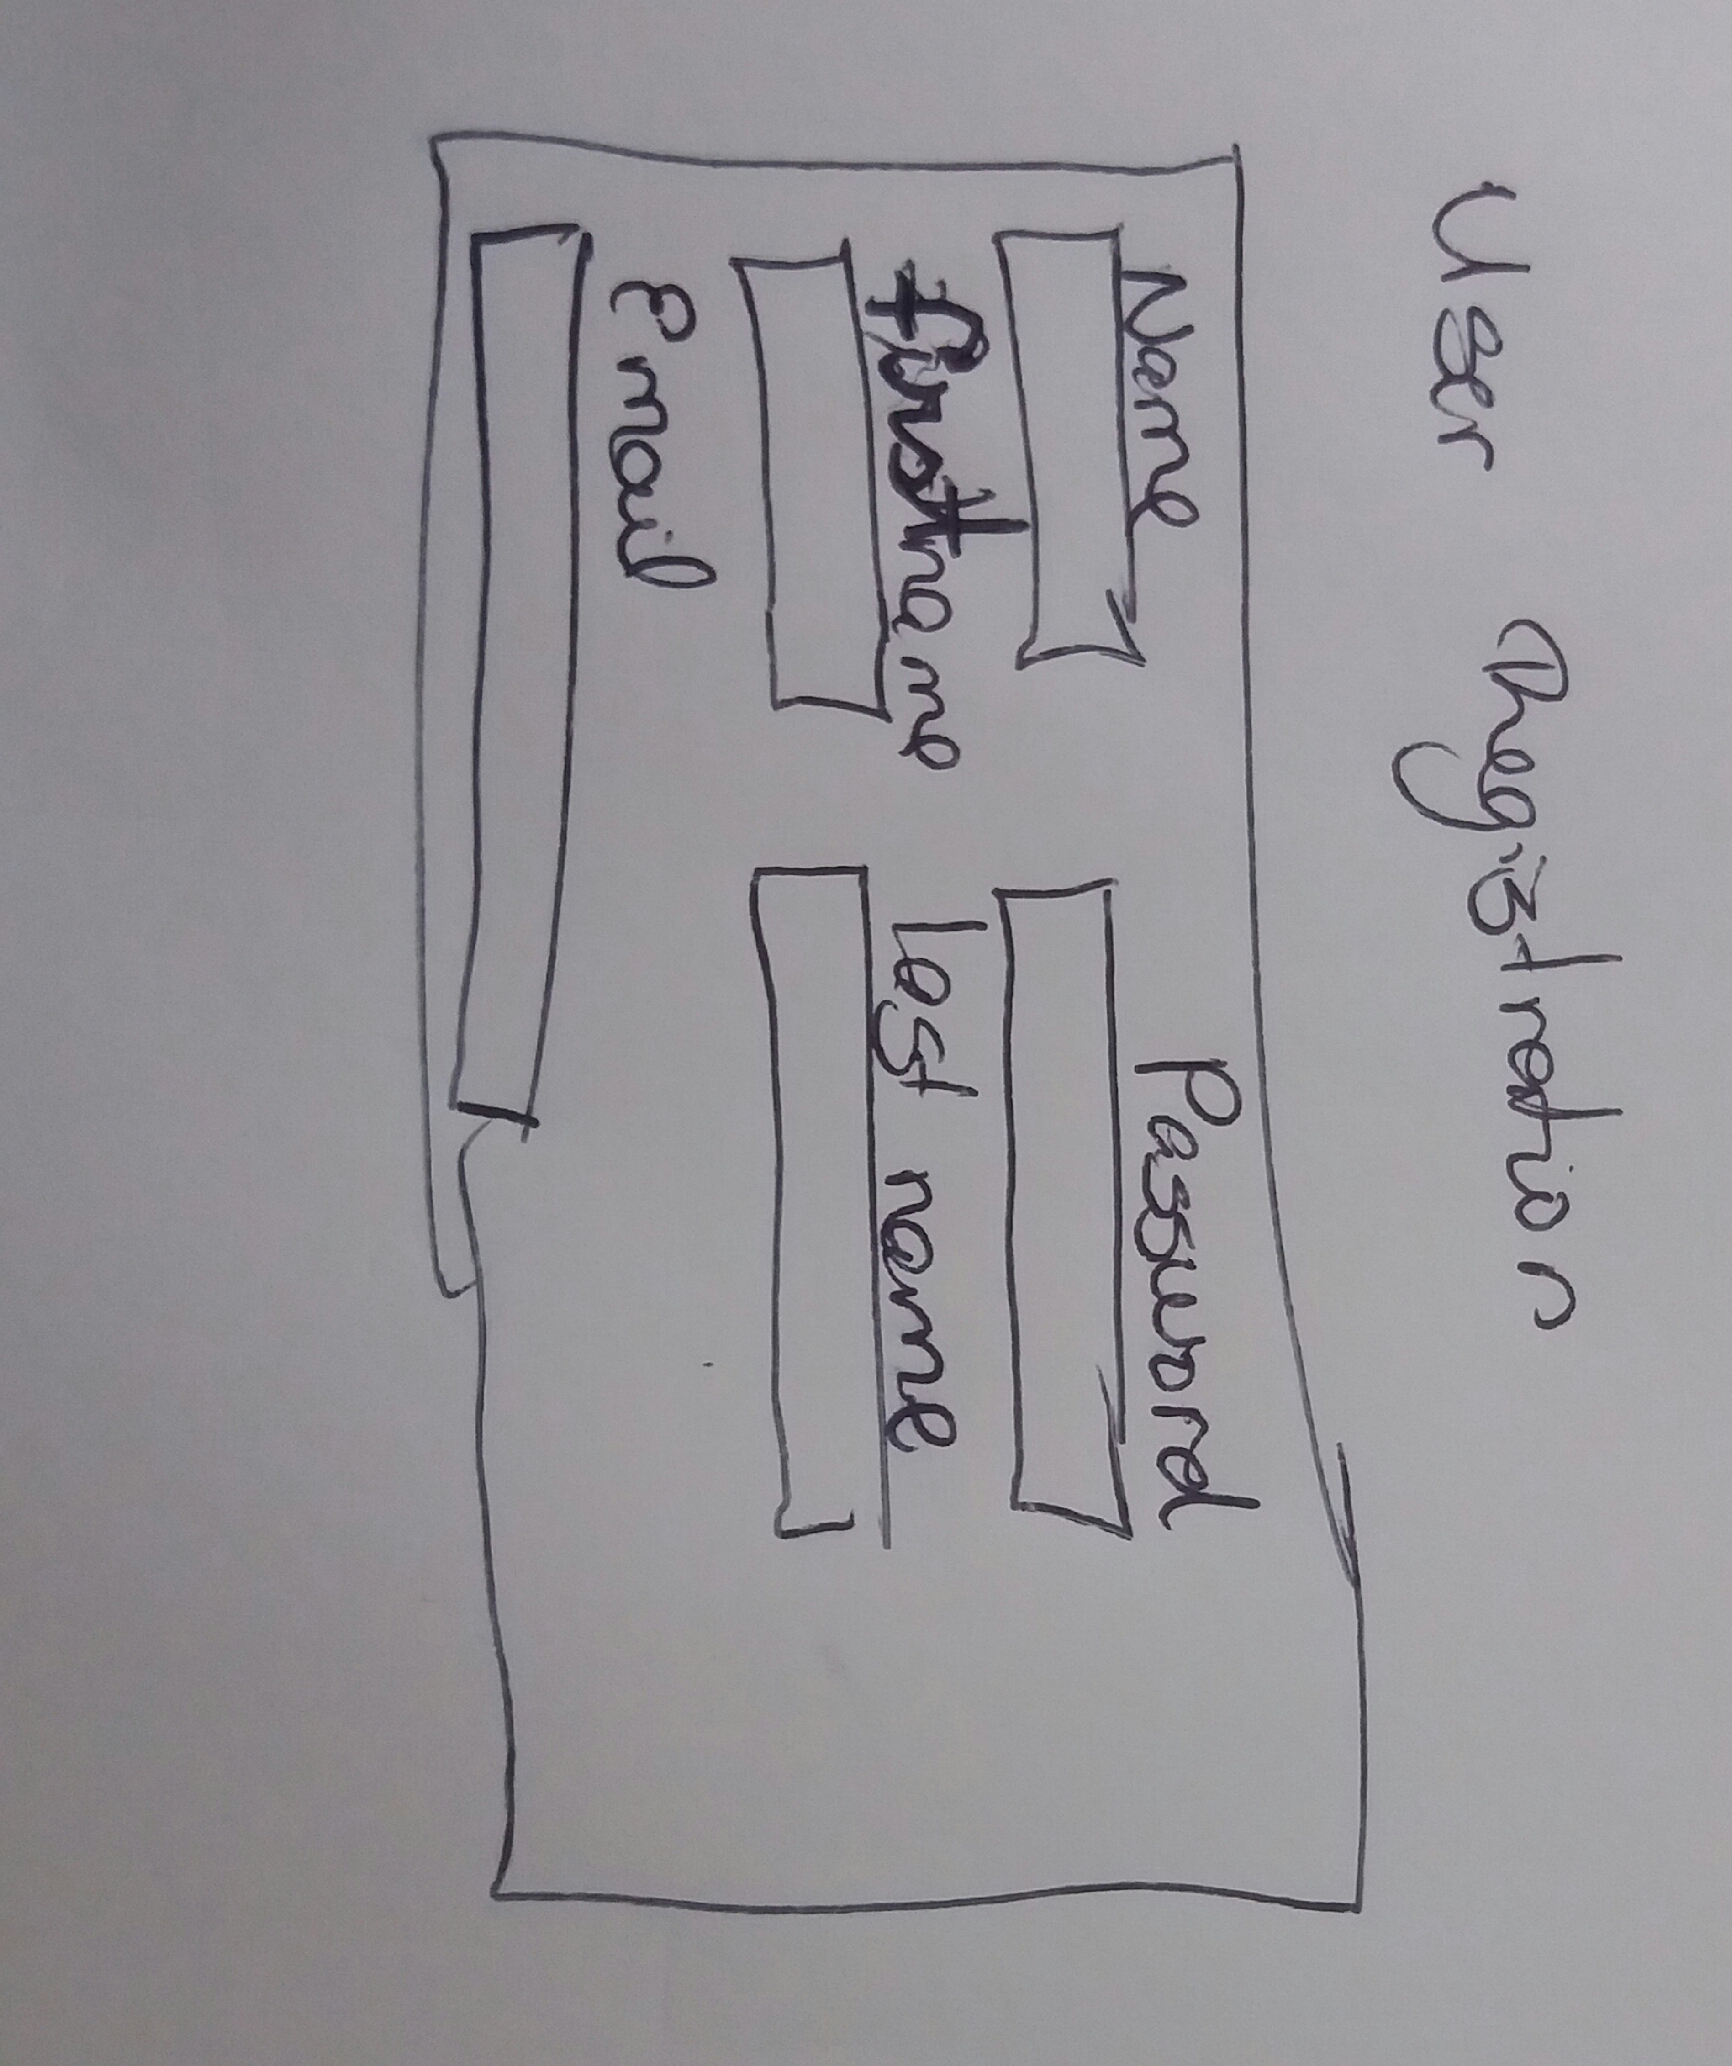 User Registration
Name Password
firstname Last name
Email